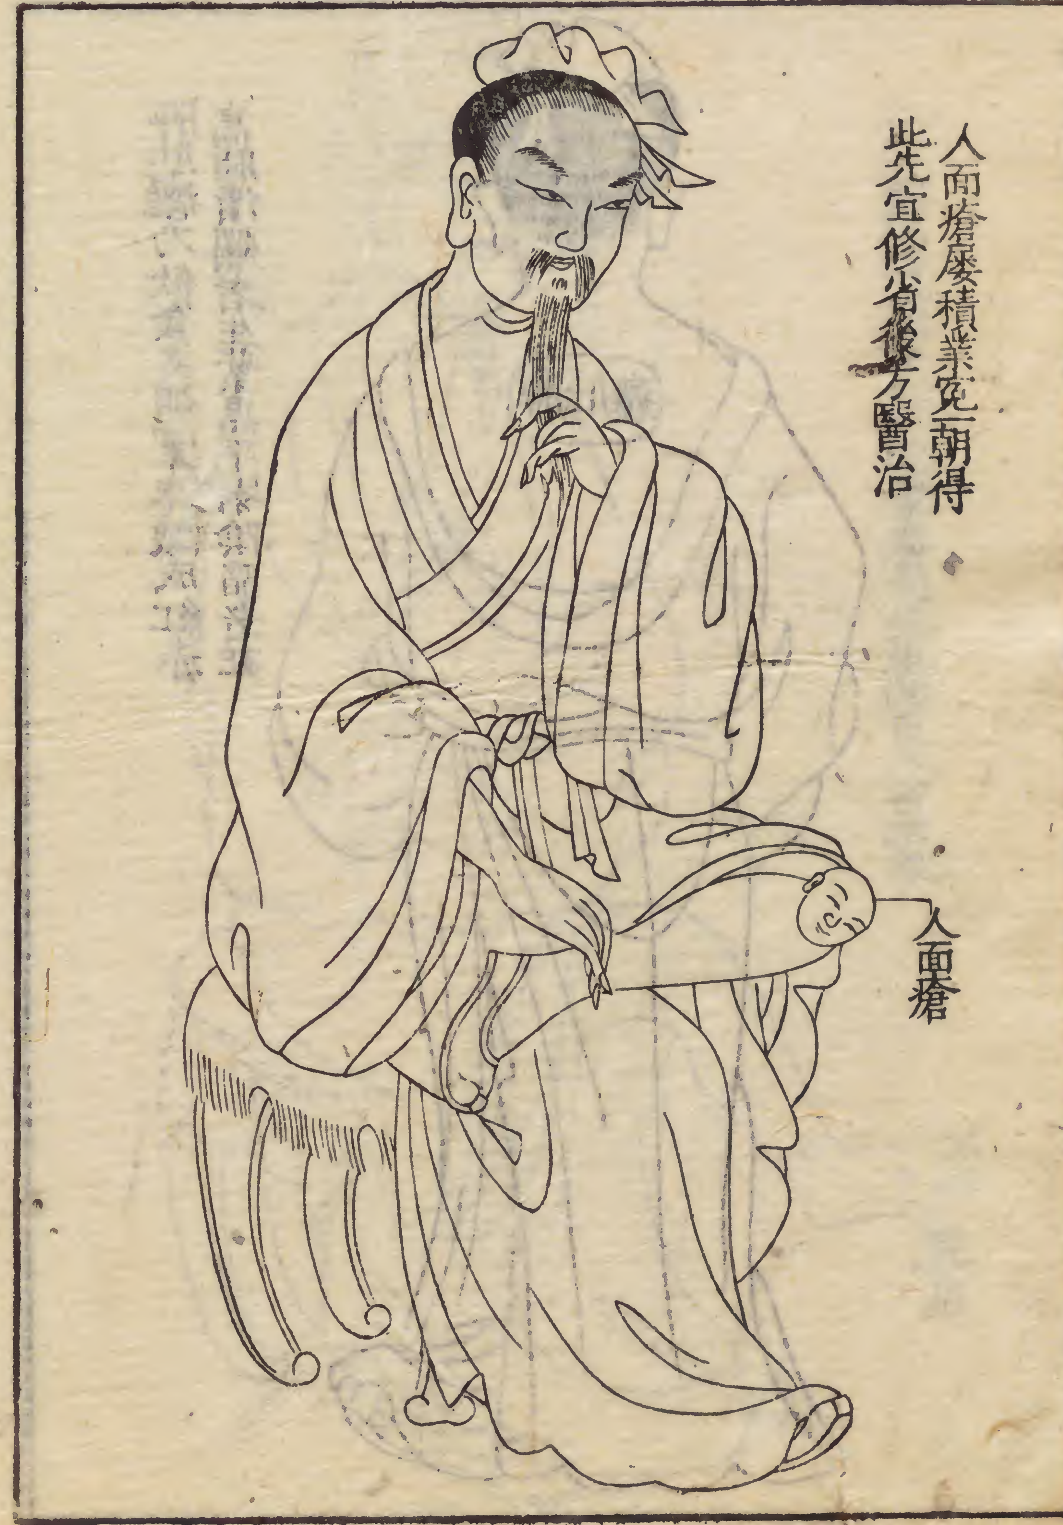 人面瘡屡積業冤一朝得
此先宜修省後方醫治
人面瘡